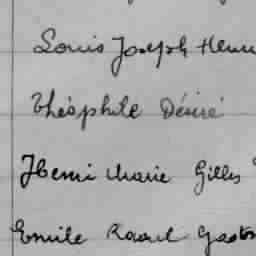 Louis Joseph Henri
Théophile Désiré
Henri Marie Gilles
Emile Raoul Gaston